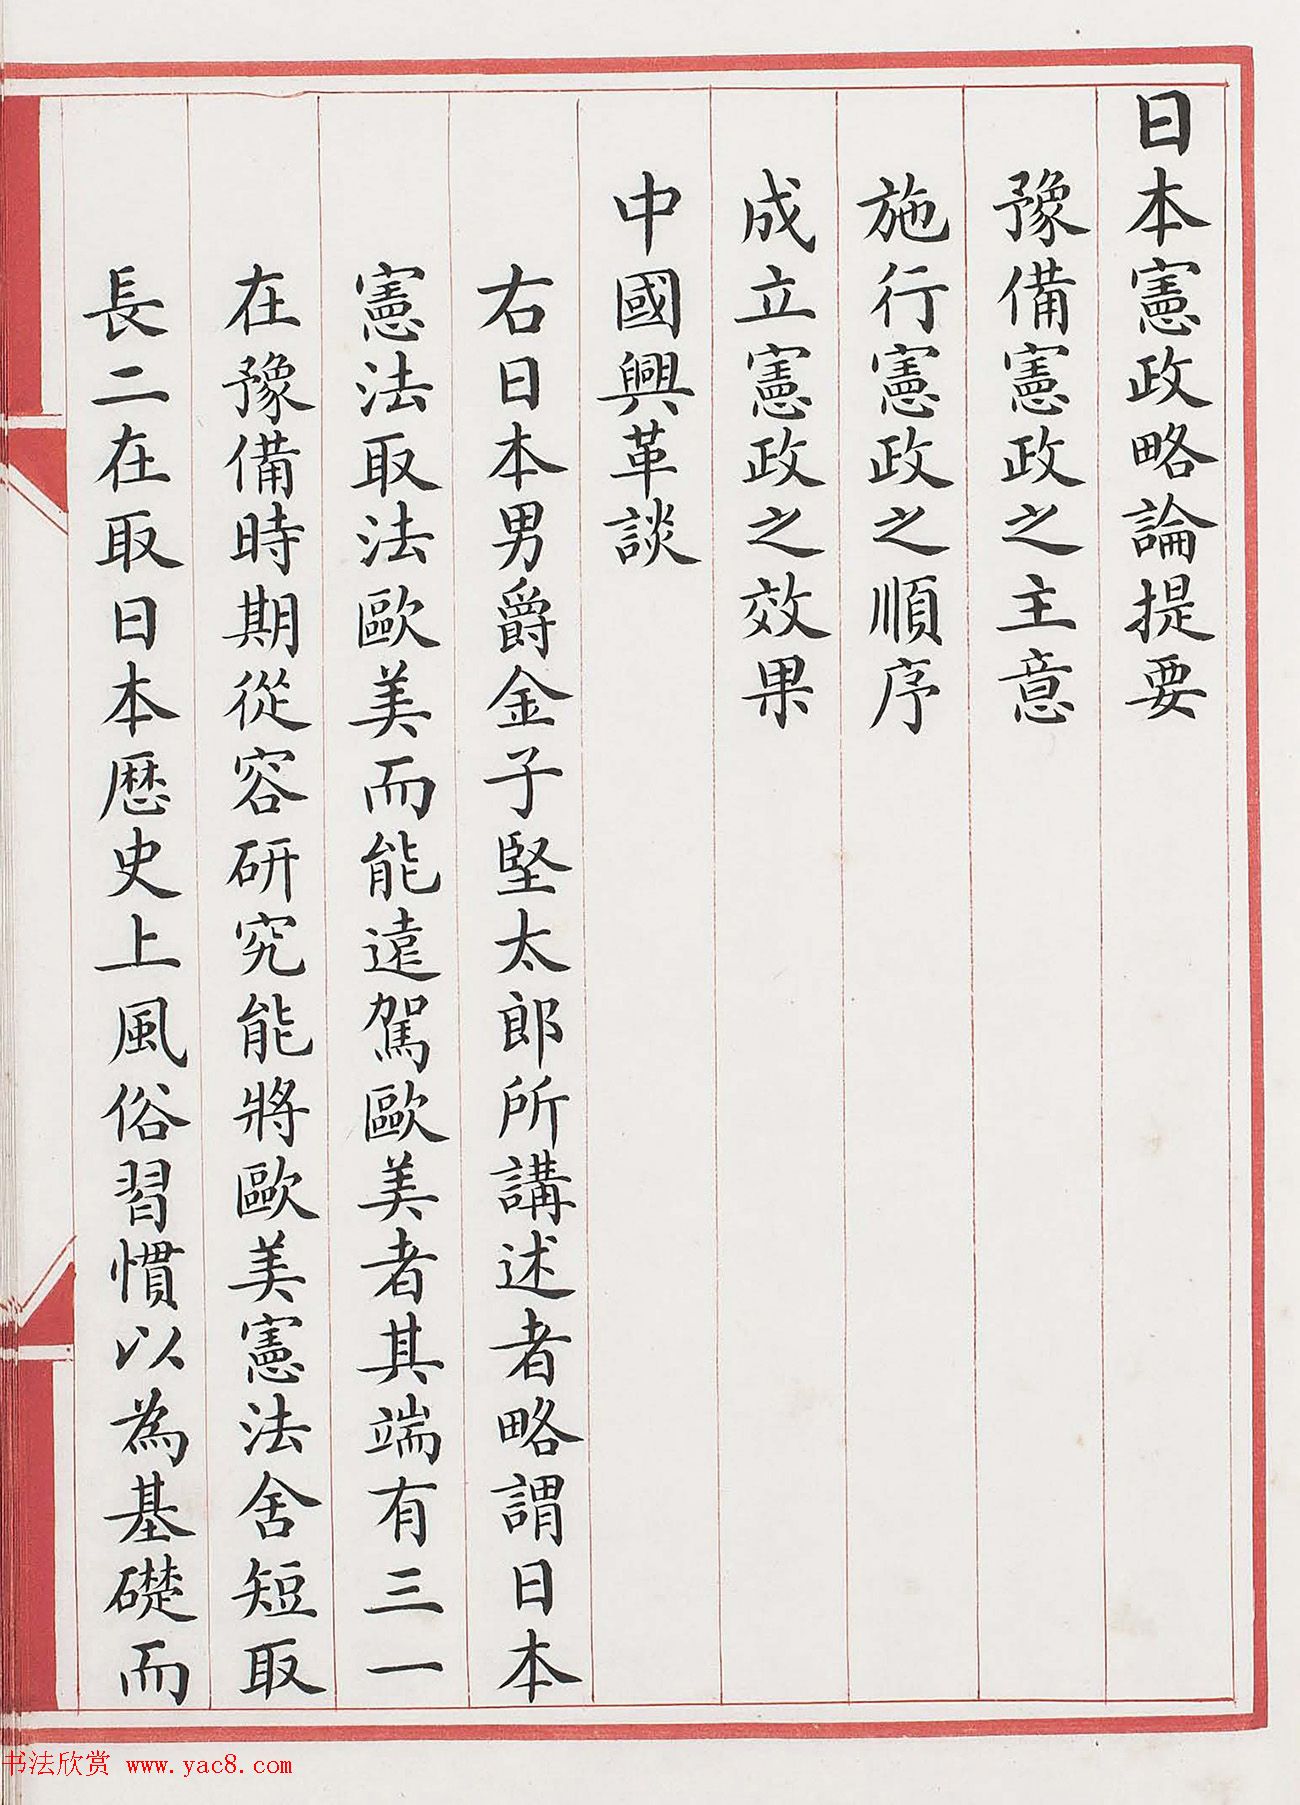 日本憲政略論提要
豫備憲政之主意
施行憲政之順序
成立憲政之效果
中國興革談
右日本男爵金子堅太郎所講述者略謂日本
憲法取法歐美而能遠駕歐美者其端有三一
在豫備時期從容研究能將歐美憲法舍短取
長二在取日本歷史上風俗習慣以為基礎而
书法欣赏 www.yac8.com